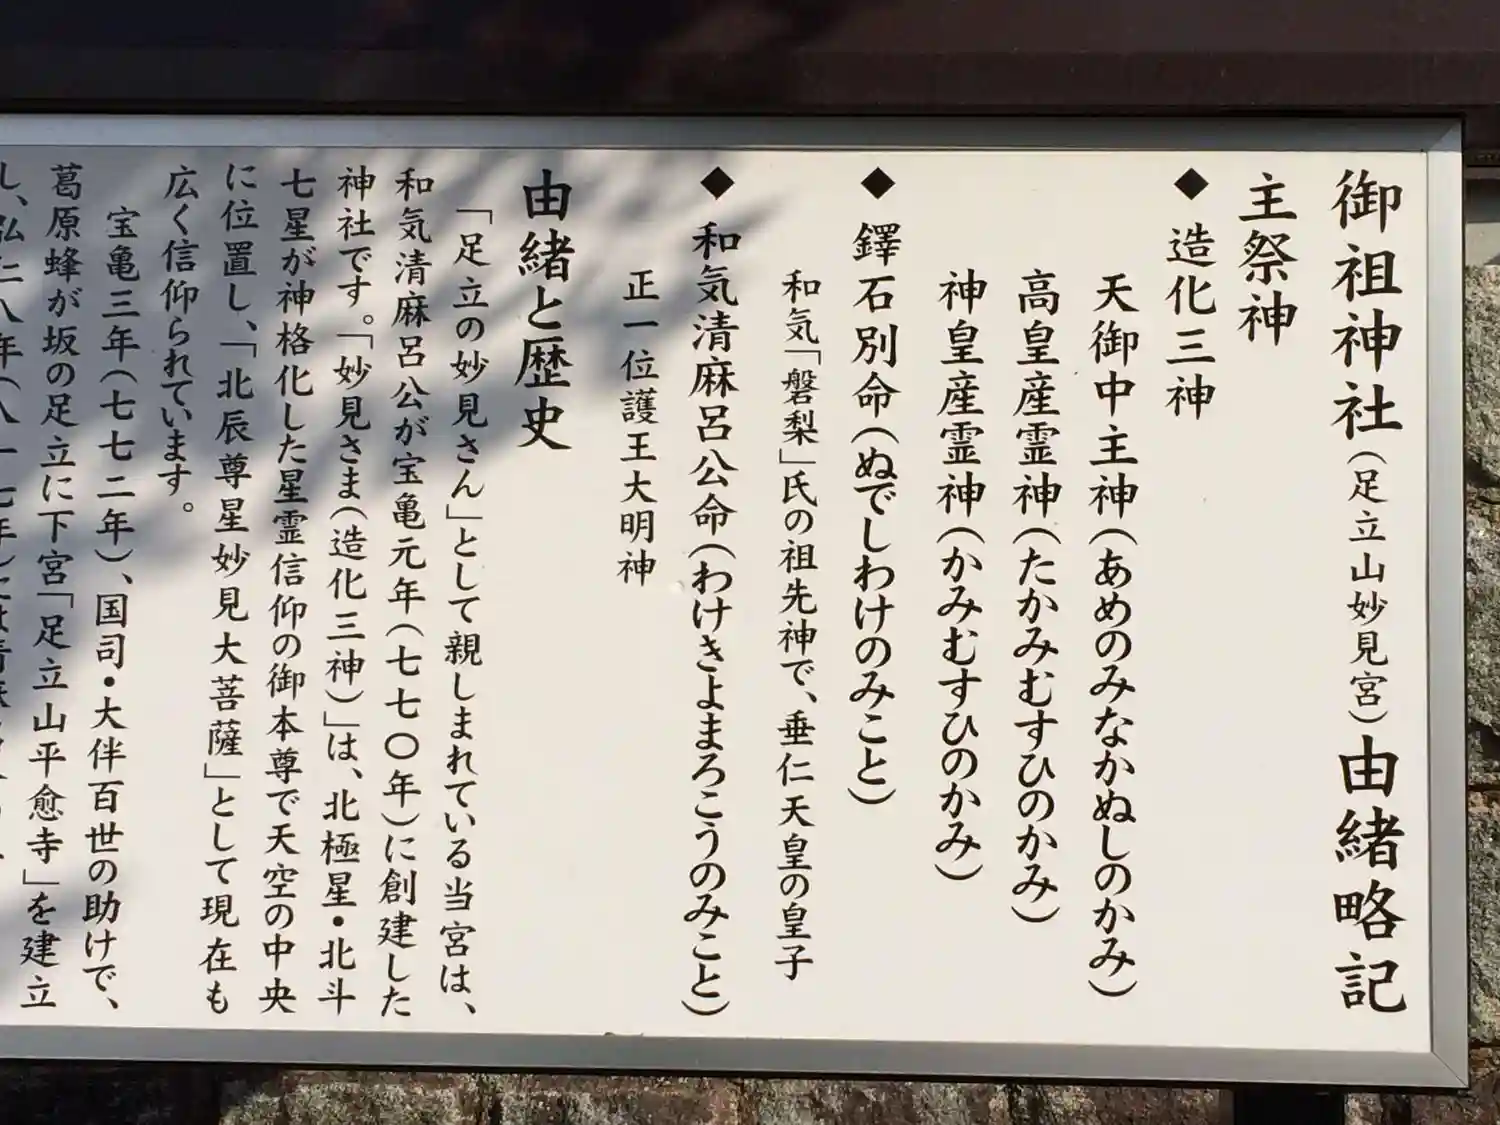 御祖神社(足立山妙見宮)由緒略記
主祭神
◆ 造化三神
天御中主神(あめのみなかぬしのかみ)
高皇産霊神(たかみむすひのかみ)
神皇産霊神(かみむすひのかみ)
◆ 鐸石別命(ぬでしわけのみこと)
和気「磐梨」氏の祖先神で、垂仁天皇の皇子
◆ 和気清麻呂公命(わけきよまろこうのみこと)
正一位護王大明神
由緒と歴史
「足立の妙見さん」として親しまれている当宮は、
和気清麻呂公が宝亀元年(七七〇年)に創建した
神社です。「妙見さま(造化三神)」は、北極星・北斗
七星が神格化した星霊信仰の御本尊で天空の中央
に位置し、「北辰尊星妙見大菩薩」として現在も
広く信仰られています。
宝亀三年(七七二年)、国司・大伴百世の助けで、
葛原蜂が坂の足立に下宮「足立山平愈寺」を建立
し、弘仁八年(八一七年)には